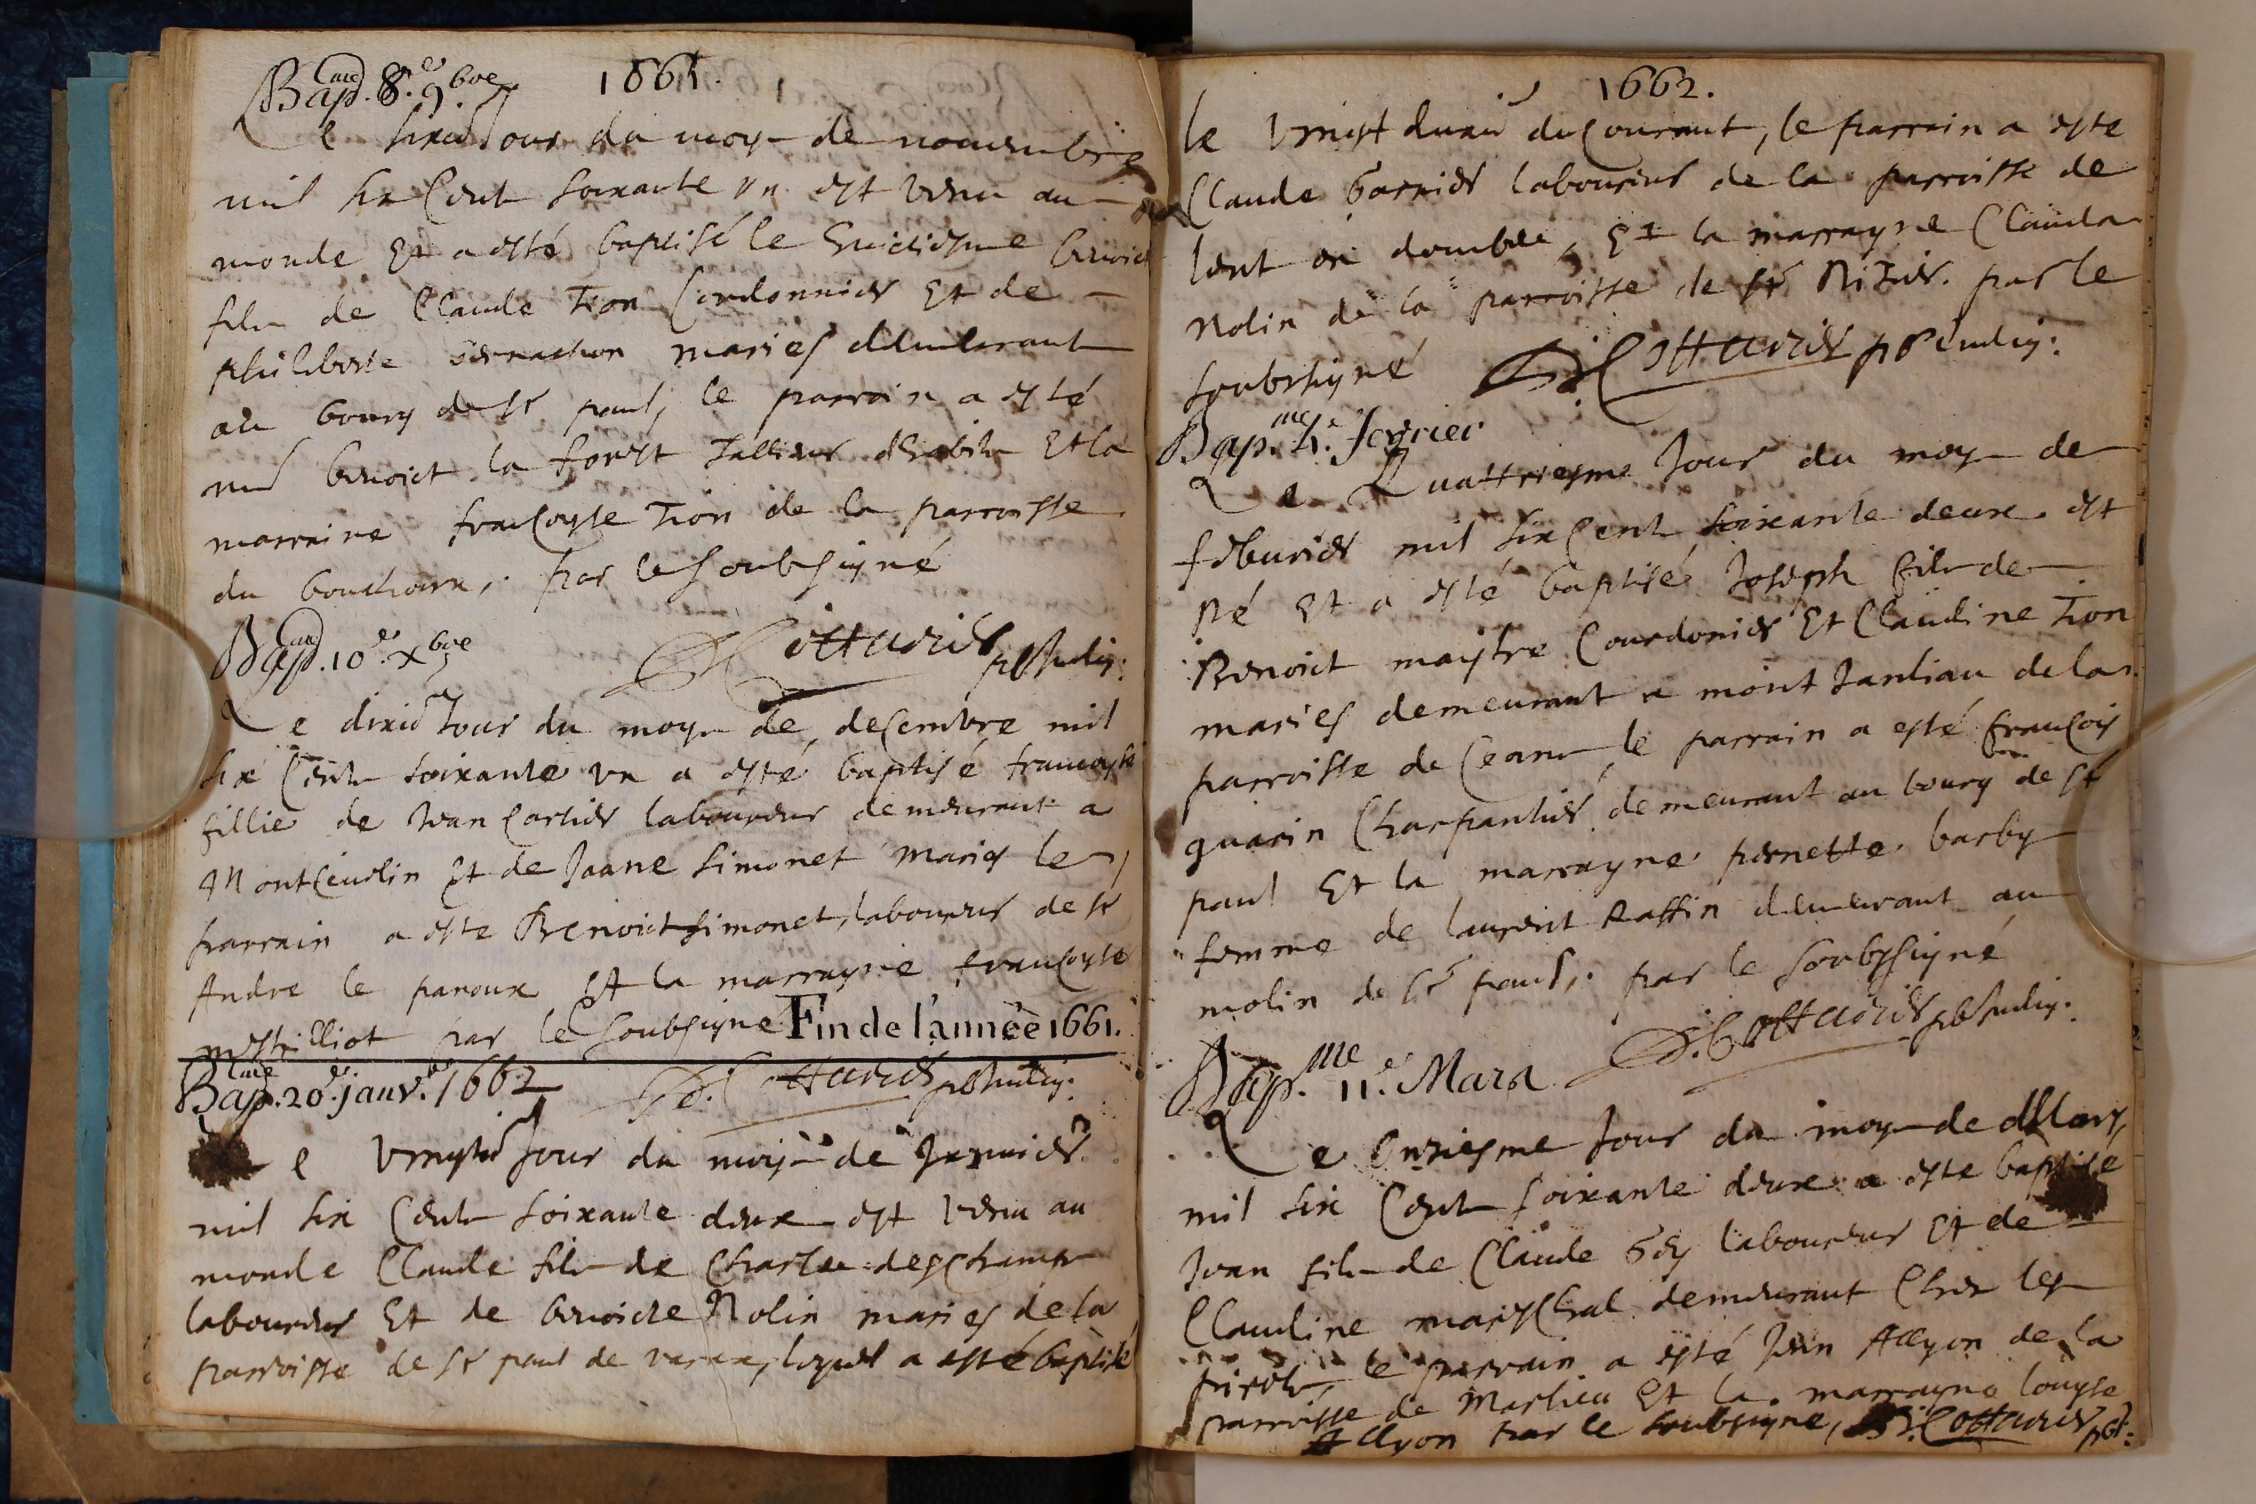 1661.
Bap. 8.e 9bre
Le sixie Jour du moys de novembre
mil six Cent soixante un est venu au
monde Et a esté baptisé le huictiesme benoict
fils de Claude Tion Cordonnier Et de
philiberte mariés demeurant
au bourg de st paul, le parrain a esté
benoict la forest Tallieur d'habits Et la
marraine francoyse Tion de la parroisse
du bouchoux, par le soubsigné
Cottavoies
Bap. 10.e xbre
Le dixie Jour du moys de decembre mil
six Cent soixante un a esté baptisé francoyse
fillie de Jean Cartier laboureur demeurant a
Montceurlin Et de Jeane Simonet mariés le
parrain a este Benoict Simonet, laboureur de st
Andre le panoux Et la marrayne francoyse
mestrilliot par le soubsigné Fin de l'année 1661.
Bap. 20.e janv. 1662
Le vingtie Jour du moys de Janvier
mil six Cent soixante deux est venu au
monde Claude fils de Charles deschamps
laboureur Et de benoicte Nolin mariés de la
parroisse de st paul de varax, lequel a esté baptisé
1662.
le vingt duxie du Courant, le parrain a este
Claude Garnier laboureur de la parroisse de
lent en dombe, Et la marrayne Clauda
Nolin de la parroisse de st Nizier. par le
soubsigné Cottavoies
Bap.me 4.e fevrier
Le Quattriesme Jour du moys de
feburier mil six Cent soixante deux est
Né Et a esté baptisé Joseph fils de
Benoict maystre Courdonier Et Claudine Tion
mariés demeurant a mont Janliau de la
parroisse de Ceans, le parrain a esté francois
guarin Charpantier demeurant au bourg de st
paul Et la marrayne pernette barby
femme de laurent Raffin demeurant au
molin de st paul, par le soubsigné
Cottavoies
Bap.me 11.e Mars
Le Onziesme Jour du moys de Mars
mil six Cent soixante deux a este baptisé
Jean fils de Claude Gey laboureur Et de
Claudine mareschal demeurant Chez les
le parrain a esté Jean Allyon de la
parroisse de Marlieu Et la marrayne louyse
Allyon par le soubsigné, Cottavoies